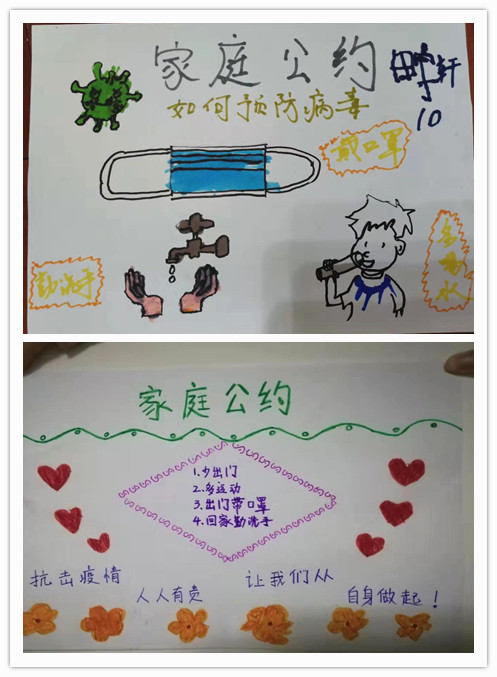 家庭公约
如何预防病毒
10
戴口罩
勤洗手
多喝水
家庭公约
1.少出门
2.多运动
3.出门带口罩
4.回家勤洗手
抗击疫情
人人有责
让我们从
自身做起！